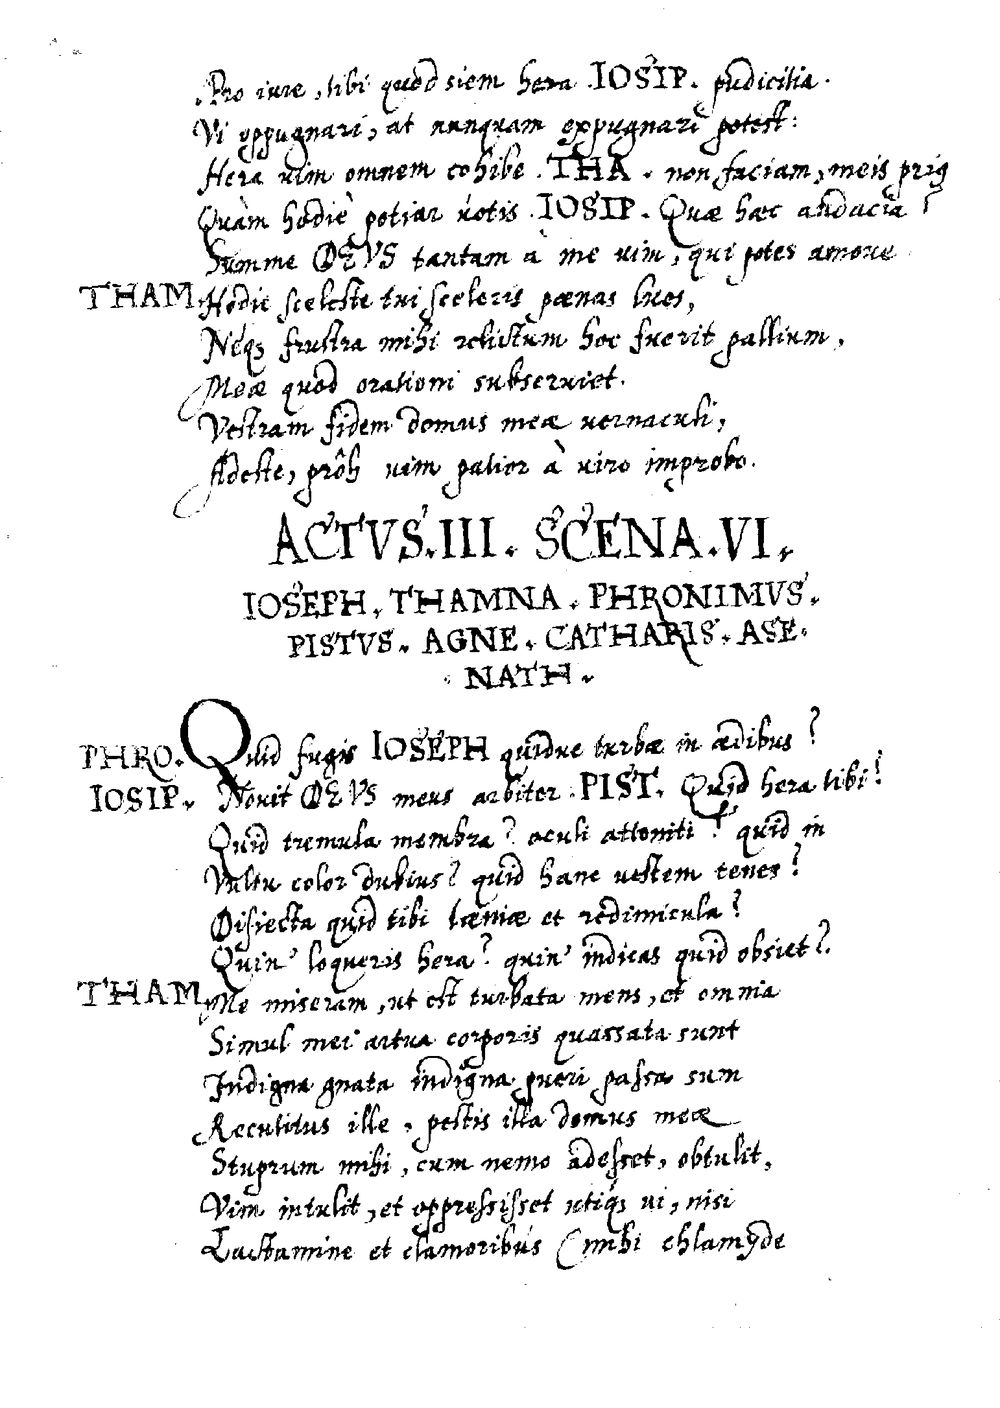 Pro iure, tibi quod siem hera .IOSIP. pudicitia.
Vi oppugnari, at nunquam expugnari potest:
Hera uim omnem cohibe .THA. non faciam, meis priq
Quàm hodie potiar uotis .IOSIP. Quæ hæc audacia?
Summe DEVS tantam à me uim, qui potes amoue
THAM. Hodie sceleste tui sceleris pœnas lues,
Neq; frustra mihi relictum hoc fuerit pallium,
Meæ quod orationi subseruiet.
Vestram fidem domus meæ uernaculi,
Adeste, prôh uim patior à uiro improbo.
ACTVS.III. SCENA.VI.
IOSEPH, THAMNA. PHRONIMVS.
PISTVS. AGNE. CATHARIS. ASE-
NATH.
PHRO. Quid fugis IOSEPH quidue turbæ in ædibus?
IOSIP. Nouit DEVS meus arbiter .PIST. Quid hera tibi?
Quid tremula membra? oculi attoniti? quid in
Vultu color dubius? quid hanc uestem tenes?
Disiecta quid tibi tæniæ et redimicula?
Quin' loqueris hera? quin' indicas quid obsiet?
THAM. Me miseram, ut est turbata mens, et omnia
Simul mei artua corporis quassata sunt
Indigna gnata indigna pueri passa sum
Recutitus ille, pestis illa domus meæ
Stuprum mihi, cum nemo adesset, obtulit,
Vim intulit, et oppressisset utiq; ui, nisi
Luctamine et clamoribus (mihi chlamyde